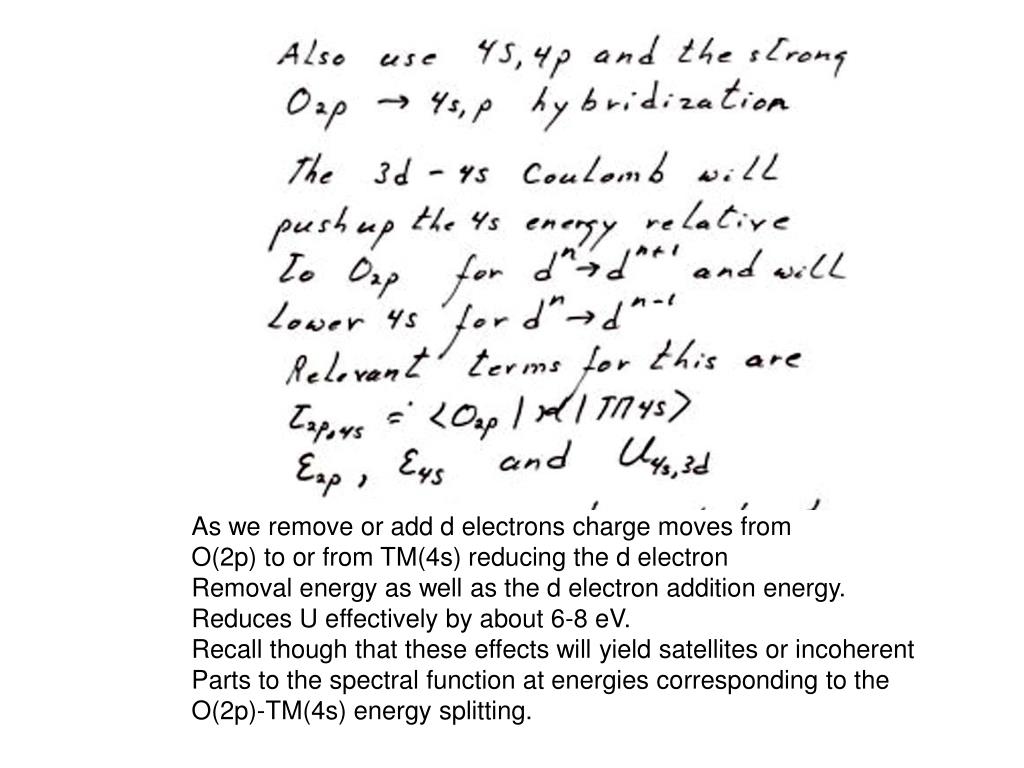 Also use 4s, 4p and the strong
O2p → 4s, p hybridization
The 3d - 4s Coulomb will
push up the 4s energy relative
to O2p for dⁿ→dⁿ⁺¹ and will
lower 4s for dⁿ→dⁿ⁻¹
Relevant terms for this are
= <O2p | | TM 4s>
ε2p, ε4s and U4s,3d
As we remove or add d electrons charge moves from
O(2p) to or from TM(4s) reducing the d electron
Removal energy as well as the d electron addition energy.
Reduces U effectively by about 6-8 eV.
Recall though that these effects will yield satellites or incoherent
Parts to the spectral function at energies corresponding to the
O(2p)-TM(4s) energy splitting.